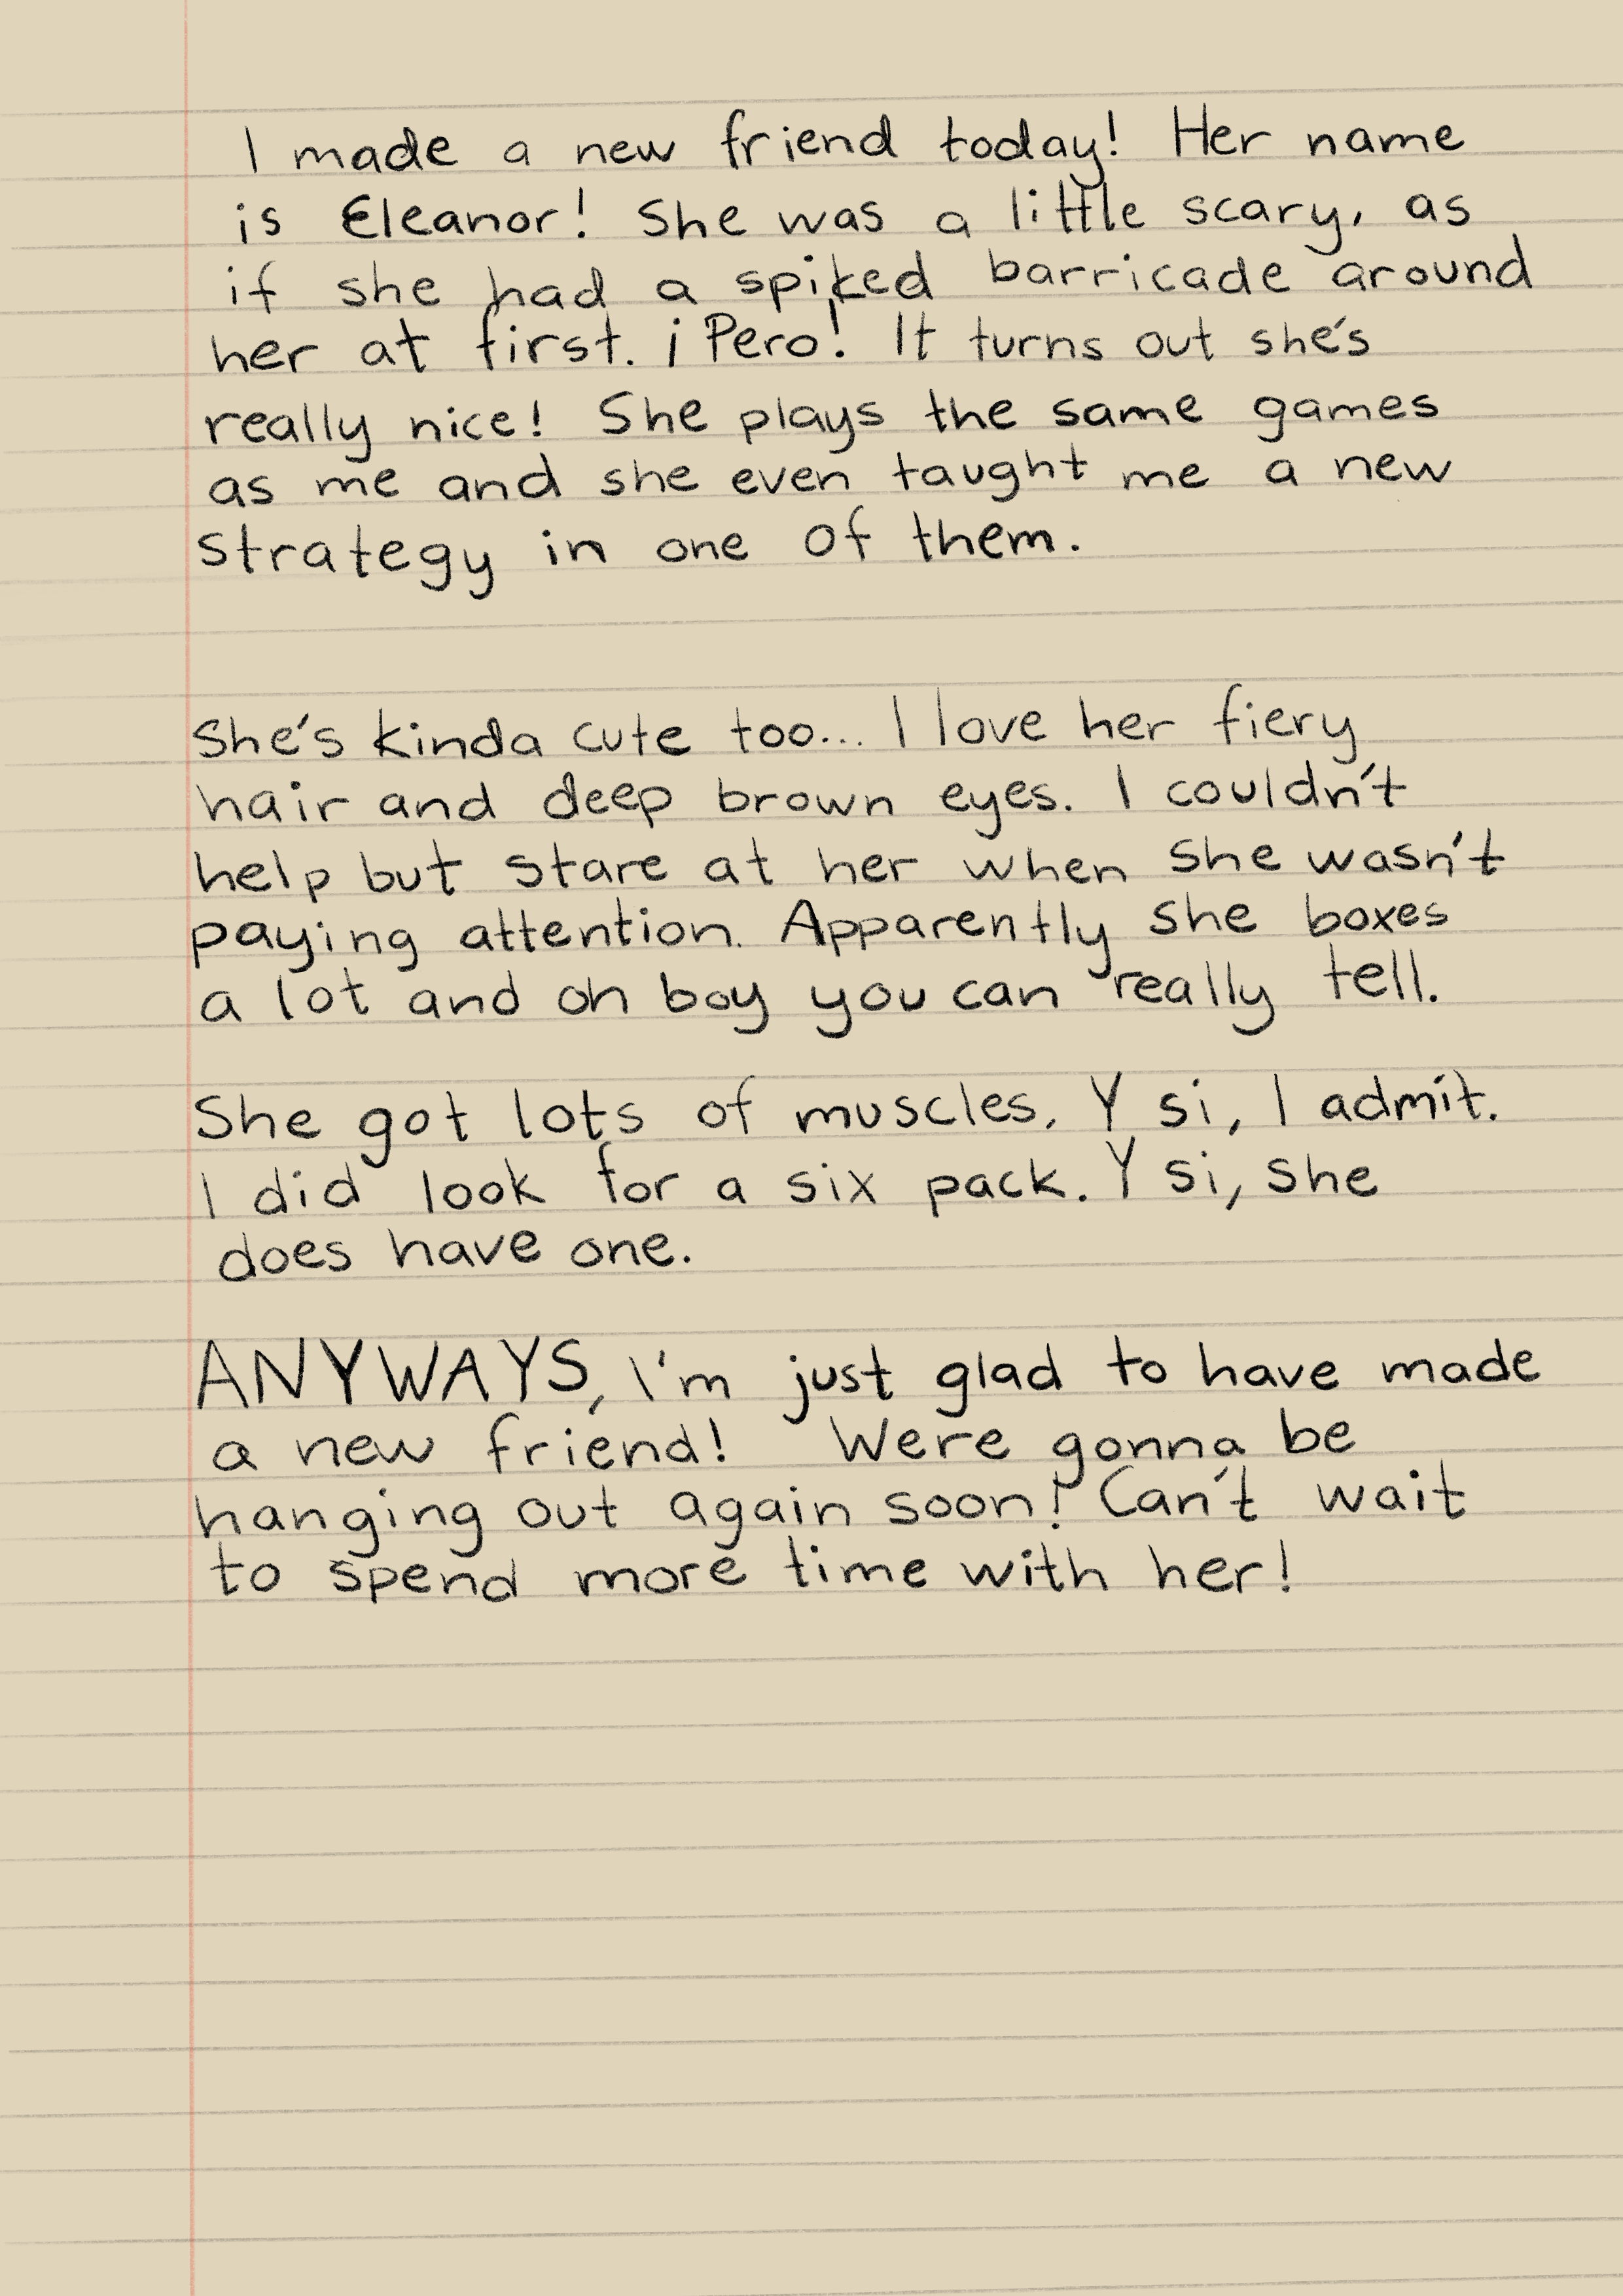 I made a new friend today! Her name
is Eleanor! She was a little scary, as
if she had a spiked barricade around
her at first. ¡Pero! It turns out she's
really nice! She plays the same games
as me and she even taught me a new
strategy in one of them.
She's kinda cute too... I love her fiery
hair and deep brown eyes. I couldn't
help but stare at her when she wasn't
paying attention. Apparently she boxes
a lot and oh boy you can really tell.
She got lots of muscles. Y si, I admit.
I did look for a six pack. Y si, she
does have one.
ANYWAYS, I'm just glad to have made
a new friend! Were gonna be
hanging out again soon! Can't wait
to spend more time with her!